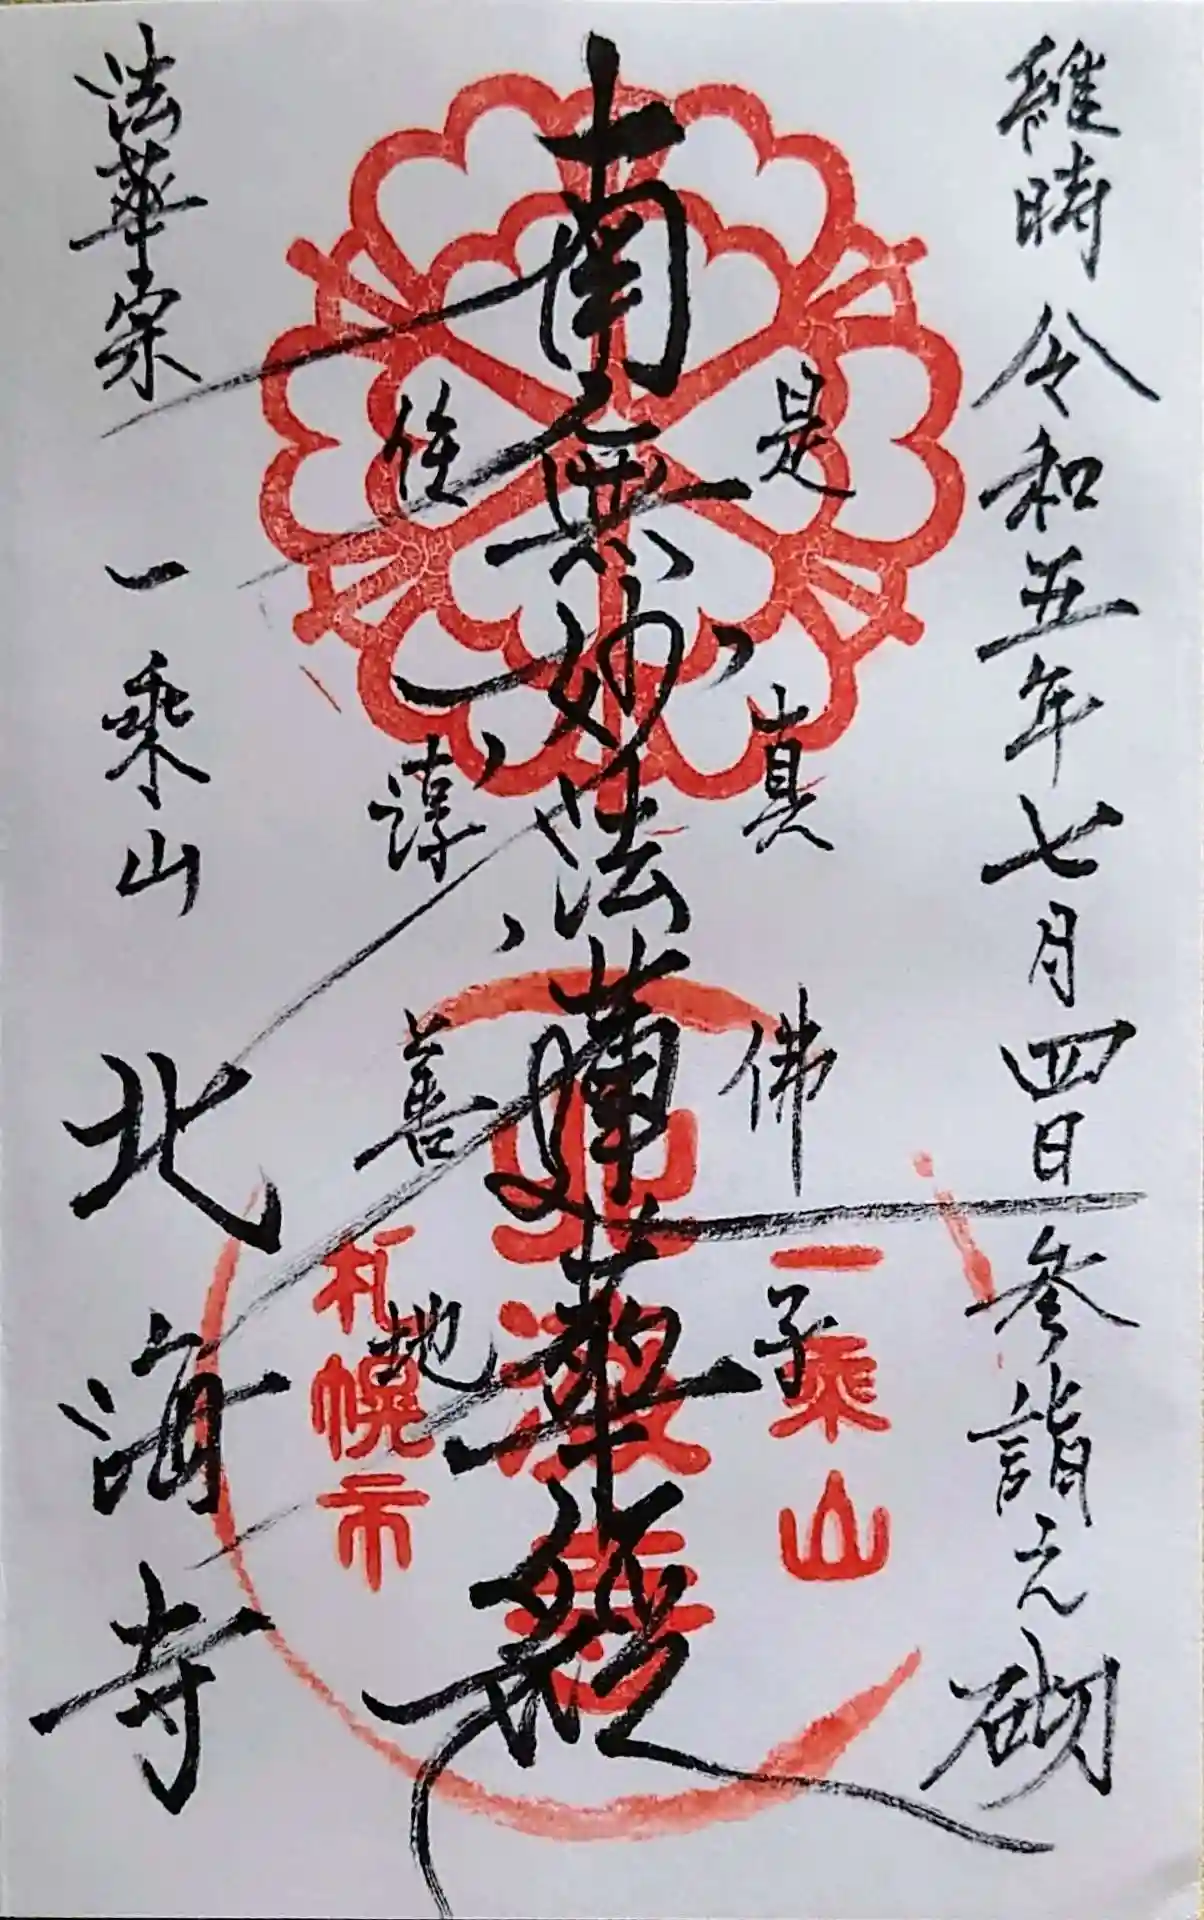 維時 令和五年七月四日参詣之砌
是真佛子
南無妙法蓮華経
住淳善地
法華宗 一乗山 北海寺
一乗山
北海寺
札幌市